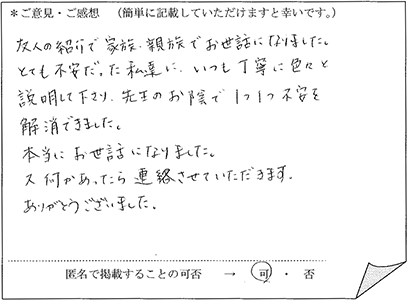 ＊ご意見・ご感想　（簡単に記載していただけますと幸いです。）
友人の紹介で家族・親族でお世話になりました。
とても不安だった私達に、いつも丁寧に色々と
説明して下さり、先生のお陰で1つ1つ不安を
解消できました。
本当にお世話になりました。
又何かあったら連絡させていただきます。
ありがとうございました。
匿名で掲載することの可否　→　可　・　否